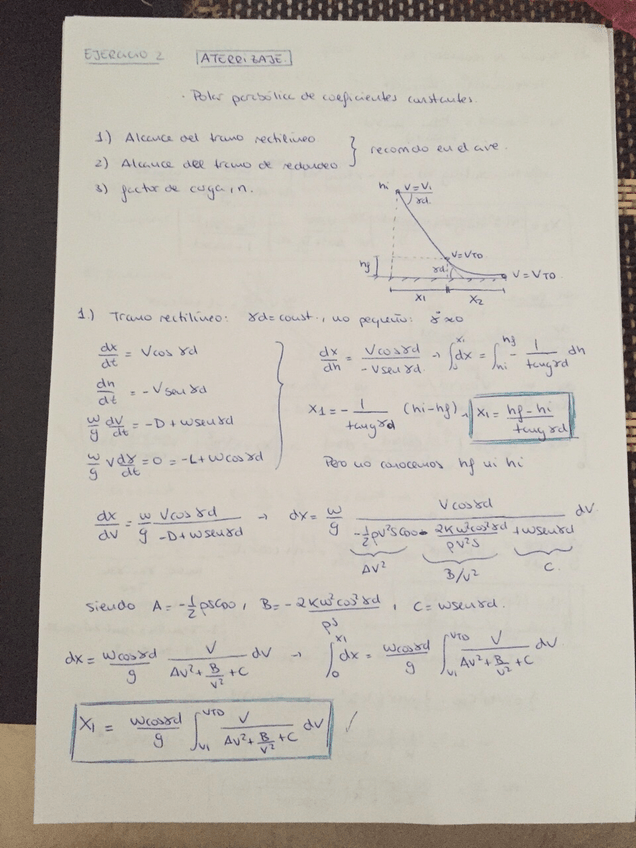 EJERCICIO 2 ATERRIZAJE.
· Polar parabólica de coeficientes constantes.
1) Alcance del tramo rectilíneo
2) Alcance del tramo de redondeo } recorrido en el aire.
3) factor de carga, n.
hi V=Vi
γd
hf V=VTD
γd V=VTD
X1 X2
1.) Tramo rectilíneo: γd=const., no pequeño: γ̇≈0
dx/dt = V cos γd
dx/dh = V cos γd / -V sen γd → ∫_0^x1 dx = ∫_hi^hf - 1/tang γd dh
dh/dt = -V sen γd
w/g dV/dt = -D + w sen γd
X1 = - 1/tang γd (hi-hf) → X1 = hf-hi / tang γd
w/g V dγ/dt = 0 = -L + w cos γd
Pero no conocemos hf ni hi
dx/dV = w/g V cos γd / -D + w sen γd → dx = w/g V cos γd / -1/2 ρV²SCD0 - 2Kw²cos²γd/ρV²S + w sen γd dV
AV² B/V² C.
siendo A = -1/2 ρSCD0, B = -2Kw²cos²γd/ρS, C = w sen γd.
dx = w cos γd/g V/AV²+B/V²+C dV → ∫_0^X1 dx = w cos γd/g ∫_V1^VTD V/AV²+B/V²+C dV
X1 = w cos γd/g ∫_V1^VTD V/AV²+B/V²+C dV ✓